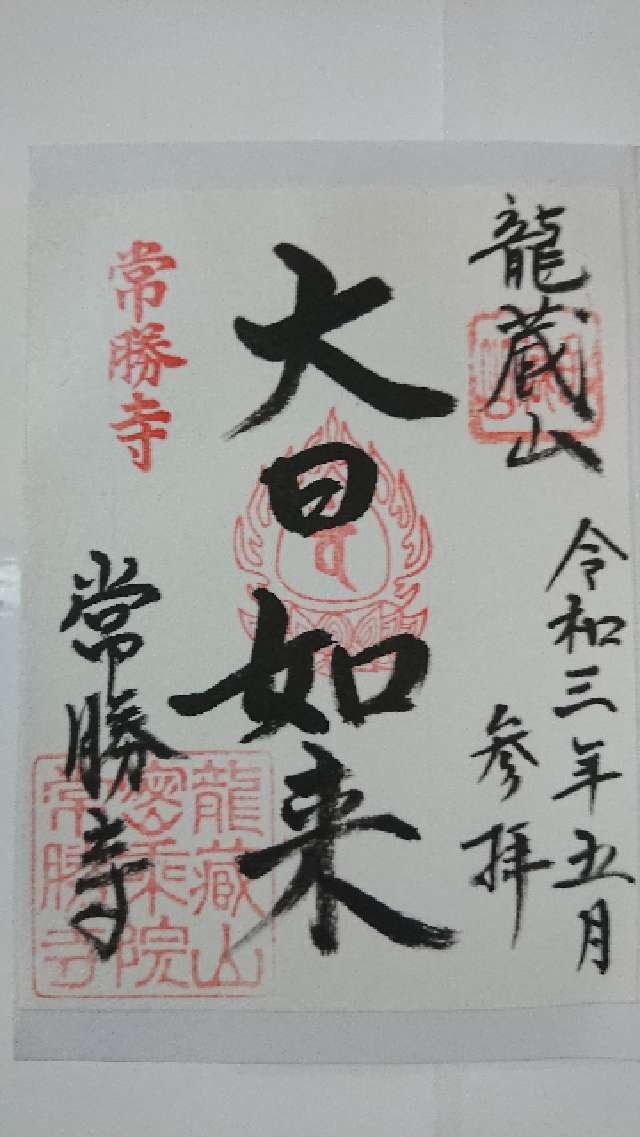 龍蔵山
令和三年五月
参拝
大日如来
常勝寺
常勝寺
龍蔵山
密乗院
常勝寺